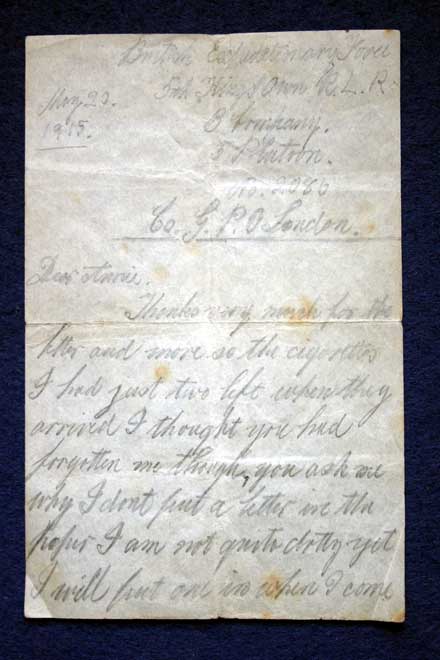 British Expeditionary Force
5th Kings Own R. L. R.
May 23.
1915.
B Company.
Platoon.
No. 2080
Co. G. P. O London.
Dear Annie.
Thanks very much for the
letter and more so the cigarettes
I had just two left when they
arrived I thought you had
forgotten me though, you ask me
why I dont put a letter in the
paper I am not quite dotty yet
I will put one in when I come